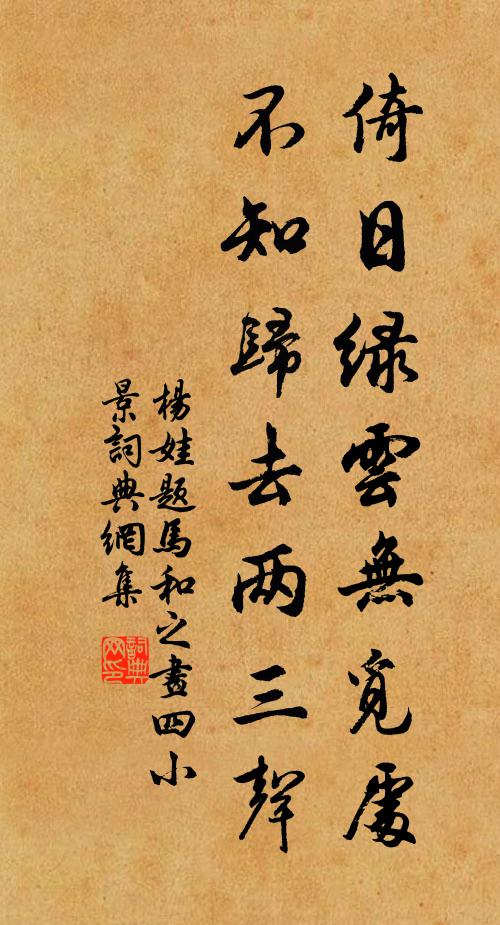 倚日緑雲無覓處
不知歸去两三聲
楊娃題馬和之畫四小
景詞典網集
詞典
网印